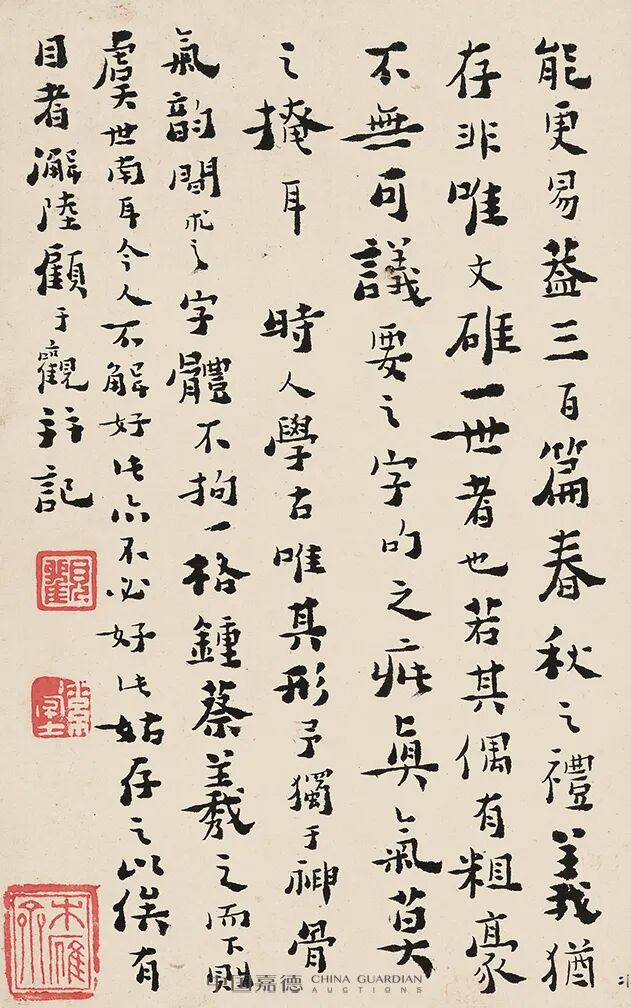 能更易蓋三百篇春秋之禮義猶
存非唯文碓一世者也若其偶有粗豪
不無可議要之字句之疵與真氣莫
之掩耳 時人學古唯其形予獨于神骨
氣韵間求之字體不拘一格鍾蔡羲之而下則
虞世南耳今人不解好此亦不必好此姑存之以俟有
目者澥陸顧于觀并記
中国嘉德 CHINA GUARDIAN
AUCTIONS